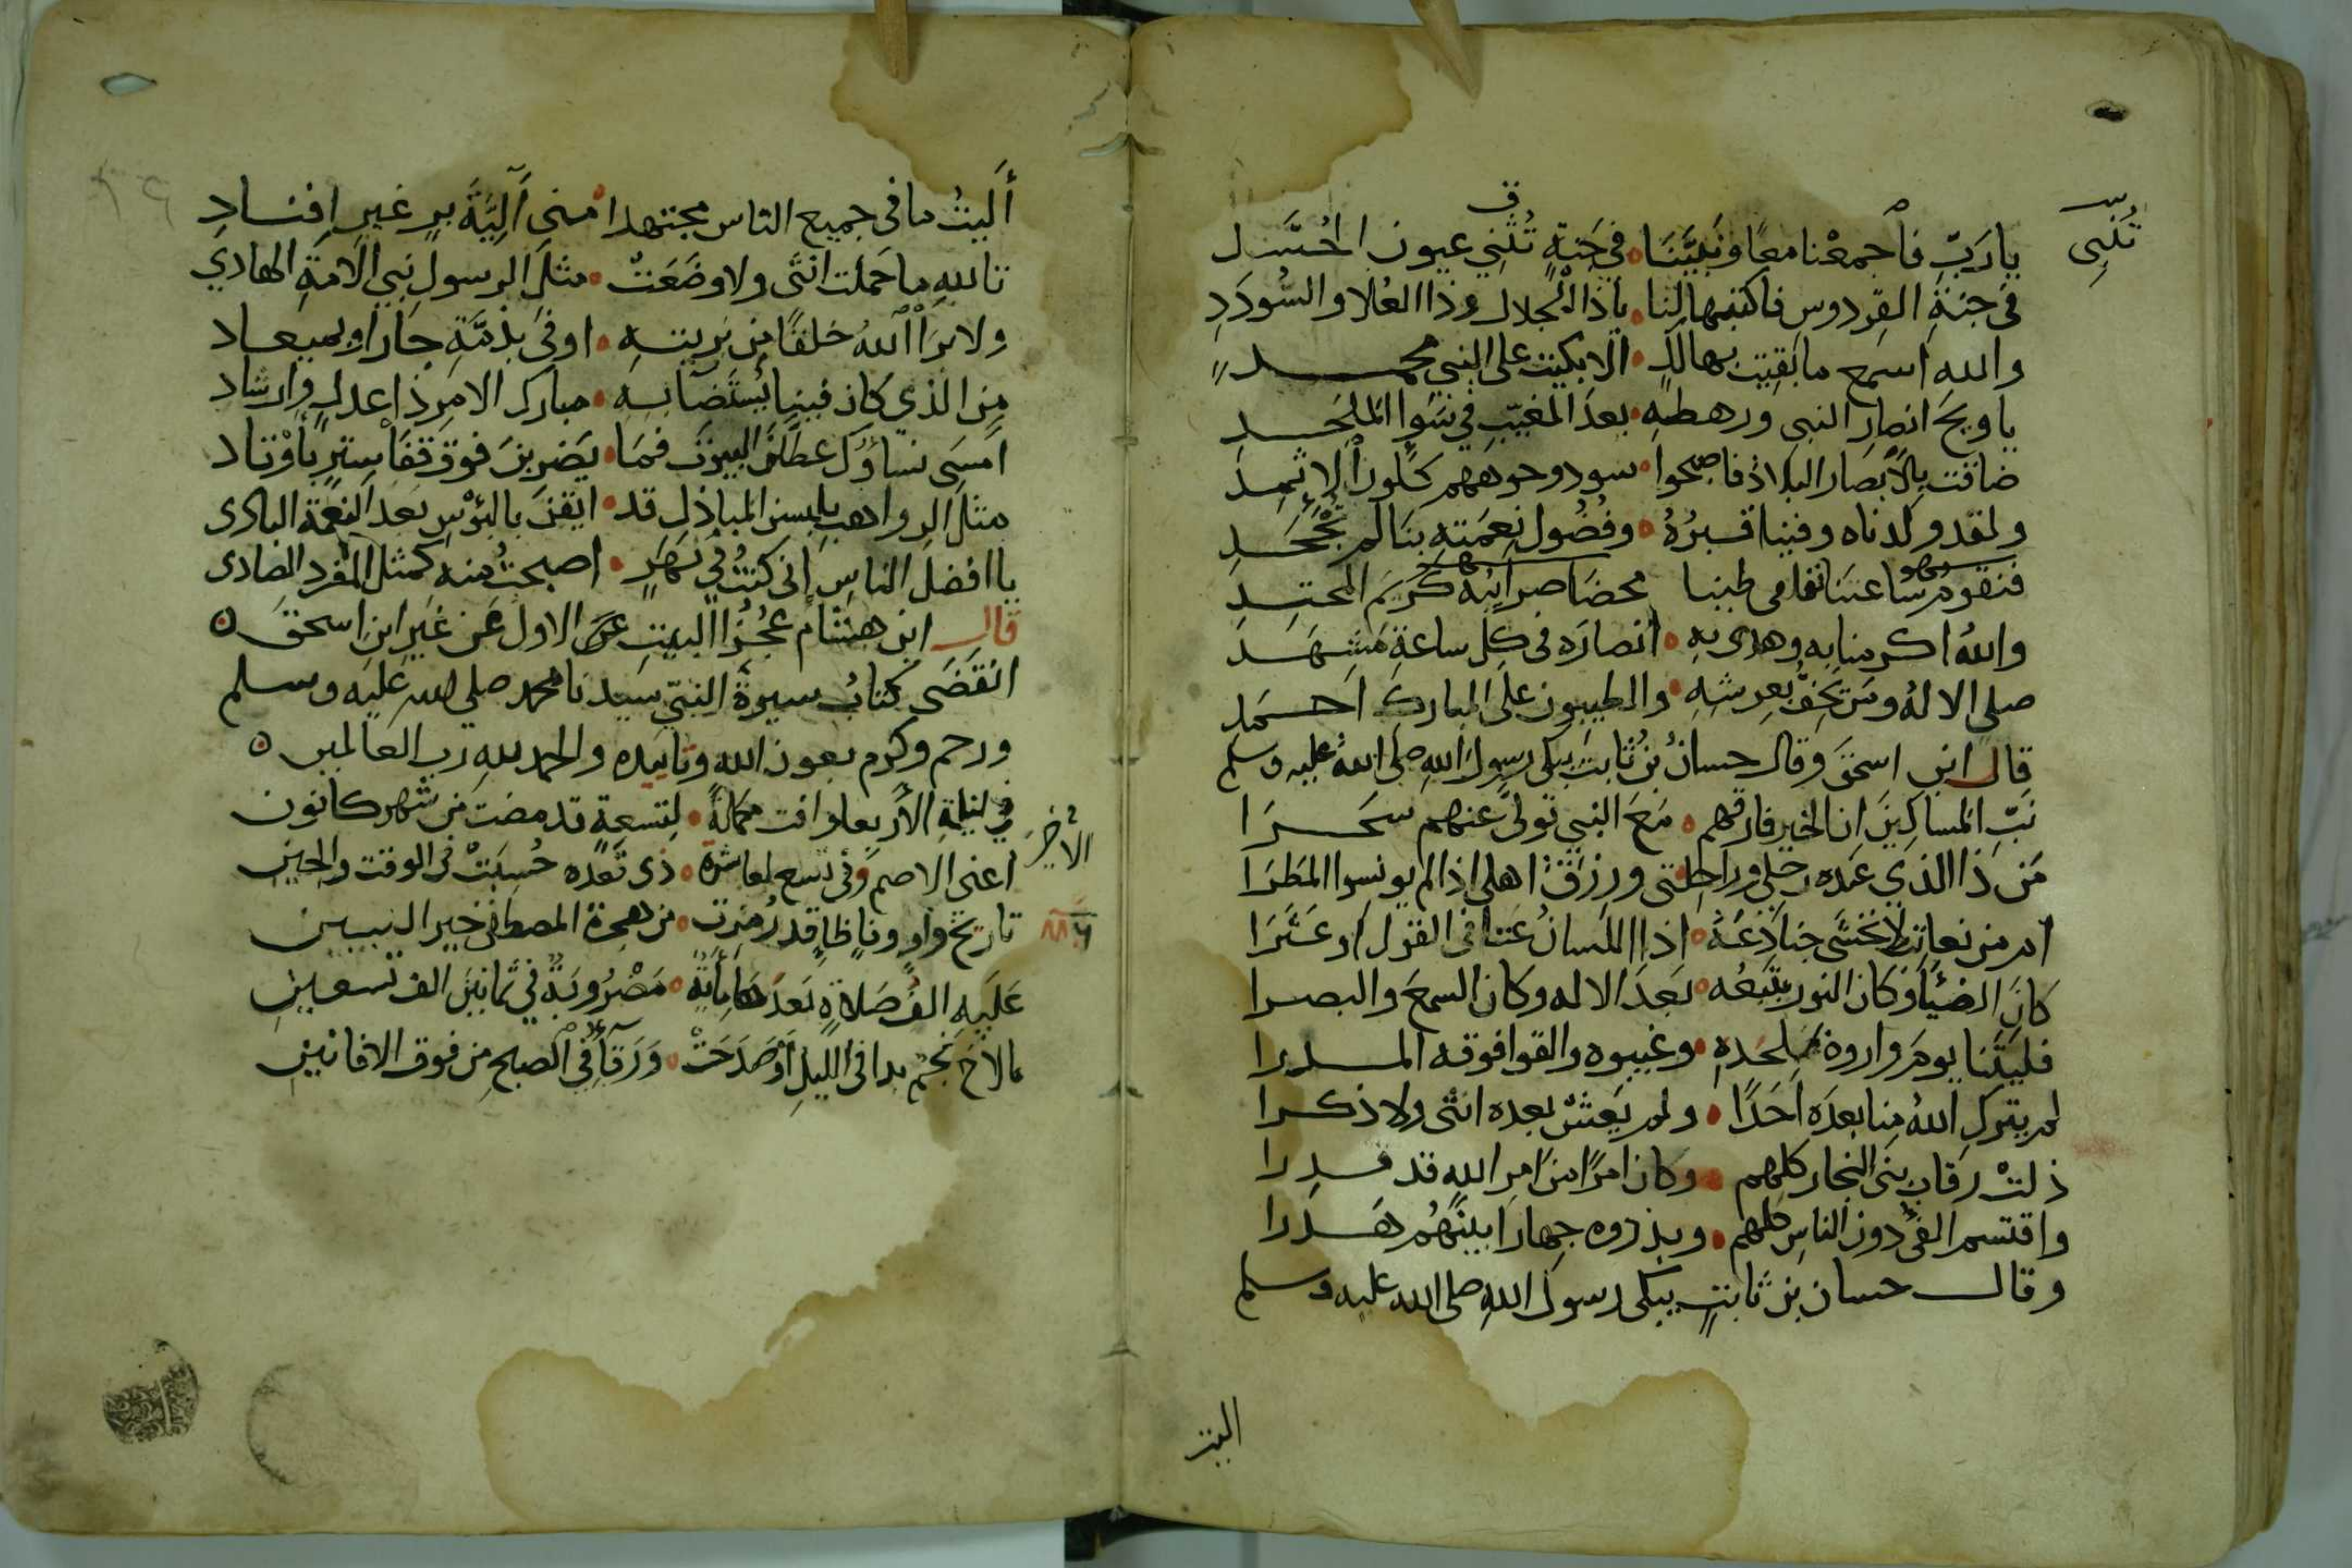 تُبْنِى
يا رَبِّ فاجمعْنا معا ونَبِيَّنَا في جَنةٍ تُثني عيون الحُسَّد
في جنةِ الفِردوس فاكتبها لنا يا ذا الجلال وذا العُلا والسُّودَدِ
والله اسمع ما بقيت بهالك الا بكيت على النبي محمد
يا ويحَ انصار النبي ورهطِه بعدَ المغيّب في سَوا المَلحَد
ضاقت بالانصار البلاد فاصبحوا سود وجوههم كلون الاثمد
ولقد ولدناه وفينا قبرُهُ وفُضُول نِعمَتِه بنا لم تُجْحَد
والله اكرمنا به وهدى به انصاره فى كل ساعة مَشهَد
صلى الاله ومن يَحُفُّ بعرشِه والطيبون على المبارك احمد
قال ابن اسحق وقال حسان بن ثابت يبكى رسول الله صلى الله عليه وسلم
نَبِّ المساكين ان الخير فارقهم مَعَ النبي تولى عنهم سَحَرَا
مَن ذا الذي عنده رحلي وراحلتى ورزقُ اهلي اذا لم يونسوا المَطَرَا
ام من نعاتب لا نخشى جنادِعَهُ اذا اللسان عتا فى القول او عَثَرَا
كان الضياَ وكان النور نتبعُه بعدَ الاله وكان السمعَ والبصرا
فليتنا يومَ واروهُ بمَلحَدِه وغيبوه والقوا فوقه المدرا
لم يترك الله منا بعدَه احَدًا ولم يَعِش بعده انثى ولا ذكرا
ذلتْ رقاب بنى النجار كلهم وكان امرًا من امر الله قد قدرا
واقتسم الفئ دون الناس كلهم وبذروه جهارا بينَهُم هَدَرا
وقال حسان بن ثابت يبكى رسول الله صلى الله عليه وسلم
البت
أَلَيتُ ما فى جميع الناس مجتهدا منى أَلِيَّةَ برٍ غير افناد
تالله ما حملت انثى ولا وضَعَتْ مثلَ الرسول نبي الامة الهادي
ولا برَاَ اللهُ خلقًا من بريتِه اوفى بذمَّةِ جار او بميعاد
مِن الذي كان فينا يُستَضَا به مبارك الامر ذا عدل وارشاد
امسَى نساؤك عطلنَ البيوتَ فما يَضرِبنَ فوق قفا ستر باوْتاد
مثل الرواهب يلبسن المباذل قد ايقنّ بالبؤسِ بعد النعمة البادى
يا افضلَ الناسِ انى كنتُ في نهَرٍ اصبحتُ منه كمثل المفرد الصادى
قال ابن هشام عجُزُ البيتِ الاول عن غير ابن اسحقَ
انقضَى كتابُ سيرة النبيّ سيدنا محمد صلي الله عليه وسلم
ورحم وكرم بعون الله وتاييده والحمد لله رب العالمين
في ليلةِ الأربعا وافت مكملة لِتسعةٍ قد مضت من شهر كانون
الاخير
اعنى الاصم وفى تسع لعاشرة ذى قعده حُسِبَتْ فى الوقت والحين
تاريخ واوٍ وفاٍ ظاٍ قد رُمِزت من هجرة المصطفى خير النبيين
عَلَيهِ الفُ صَلاةٍ بَعدَها مِأَيةٌ مَضْرُوبَةٌ في ثمانينَ الف تسعين
ما لاحَ نجْم بدا فى الليل أوْ صَدَحَتْ وَرْقآ في الصبح من فوق الافانين